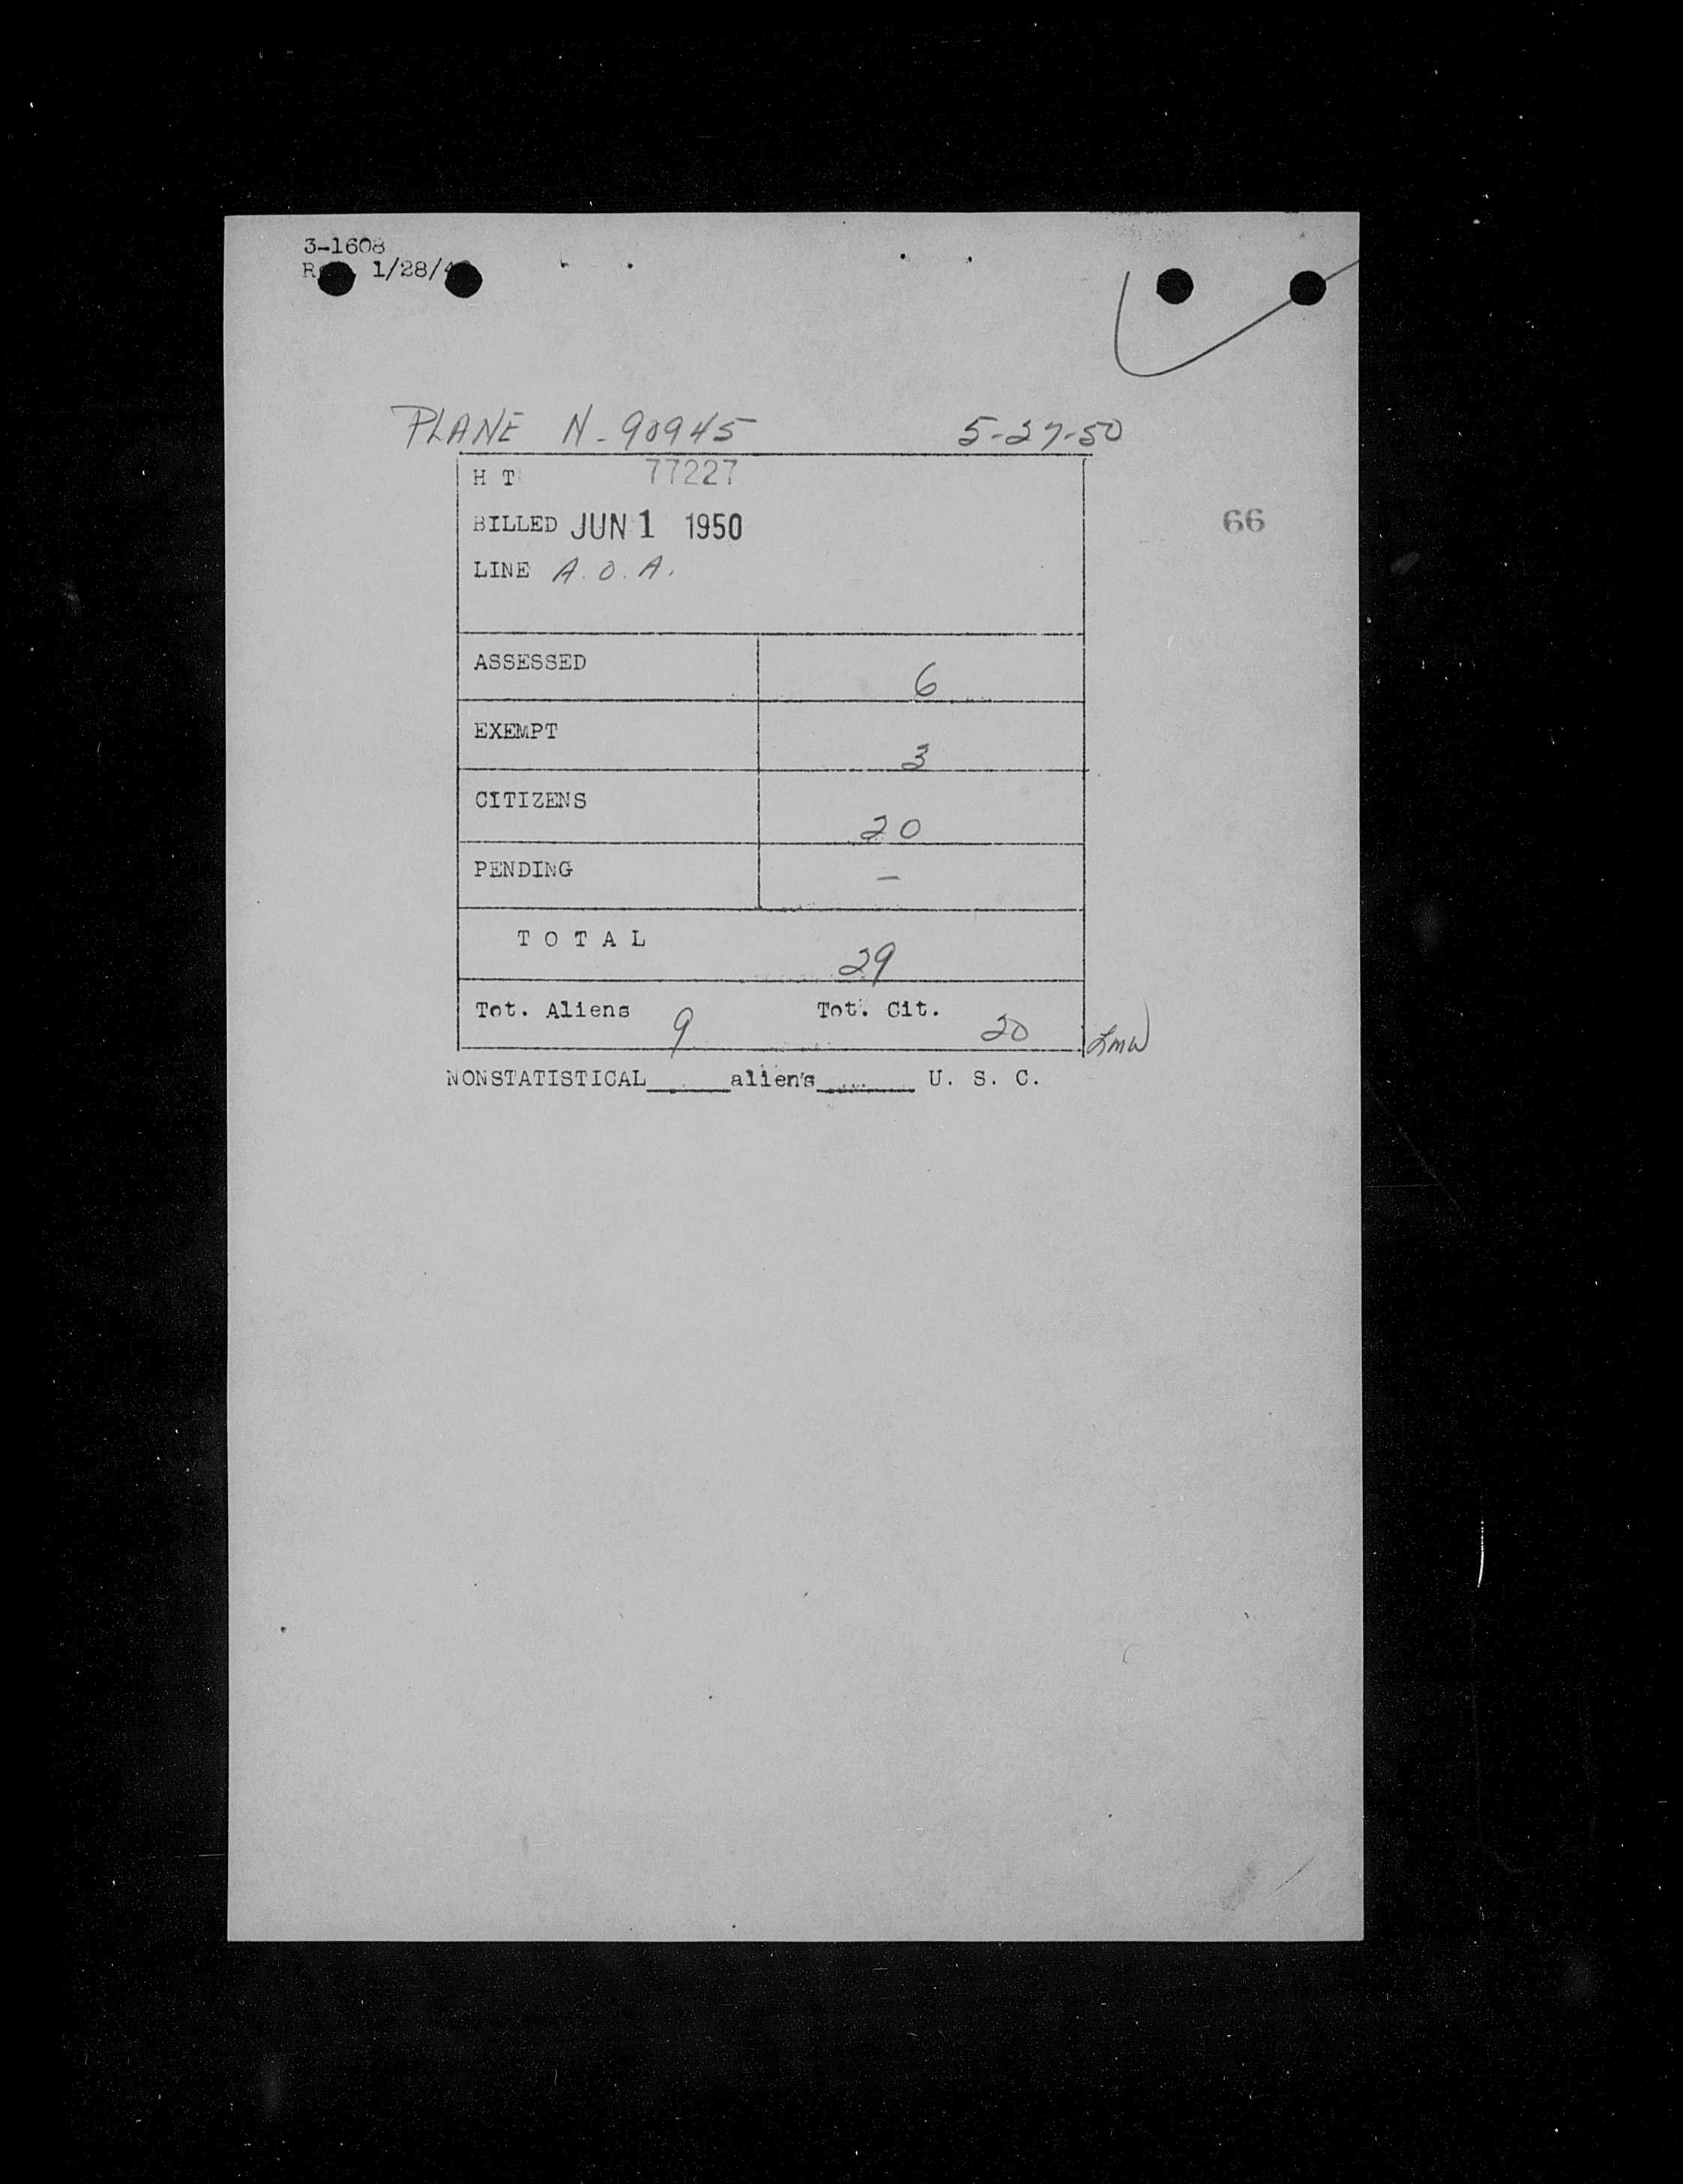 3-1608
1/28/
PLANE N-90945 5-27-50
H T 77227
BILLED JUN 1 1950
LINE A.O.A.
66
ASSESSED 6
EXEMPT 3
CITIZENS 20
PENDING –
T O T A L 29
Tot. Aliens 9 Tot. Cit. 20
LMW
NONSTATISTICAL______aliens_______ U. S. C.